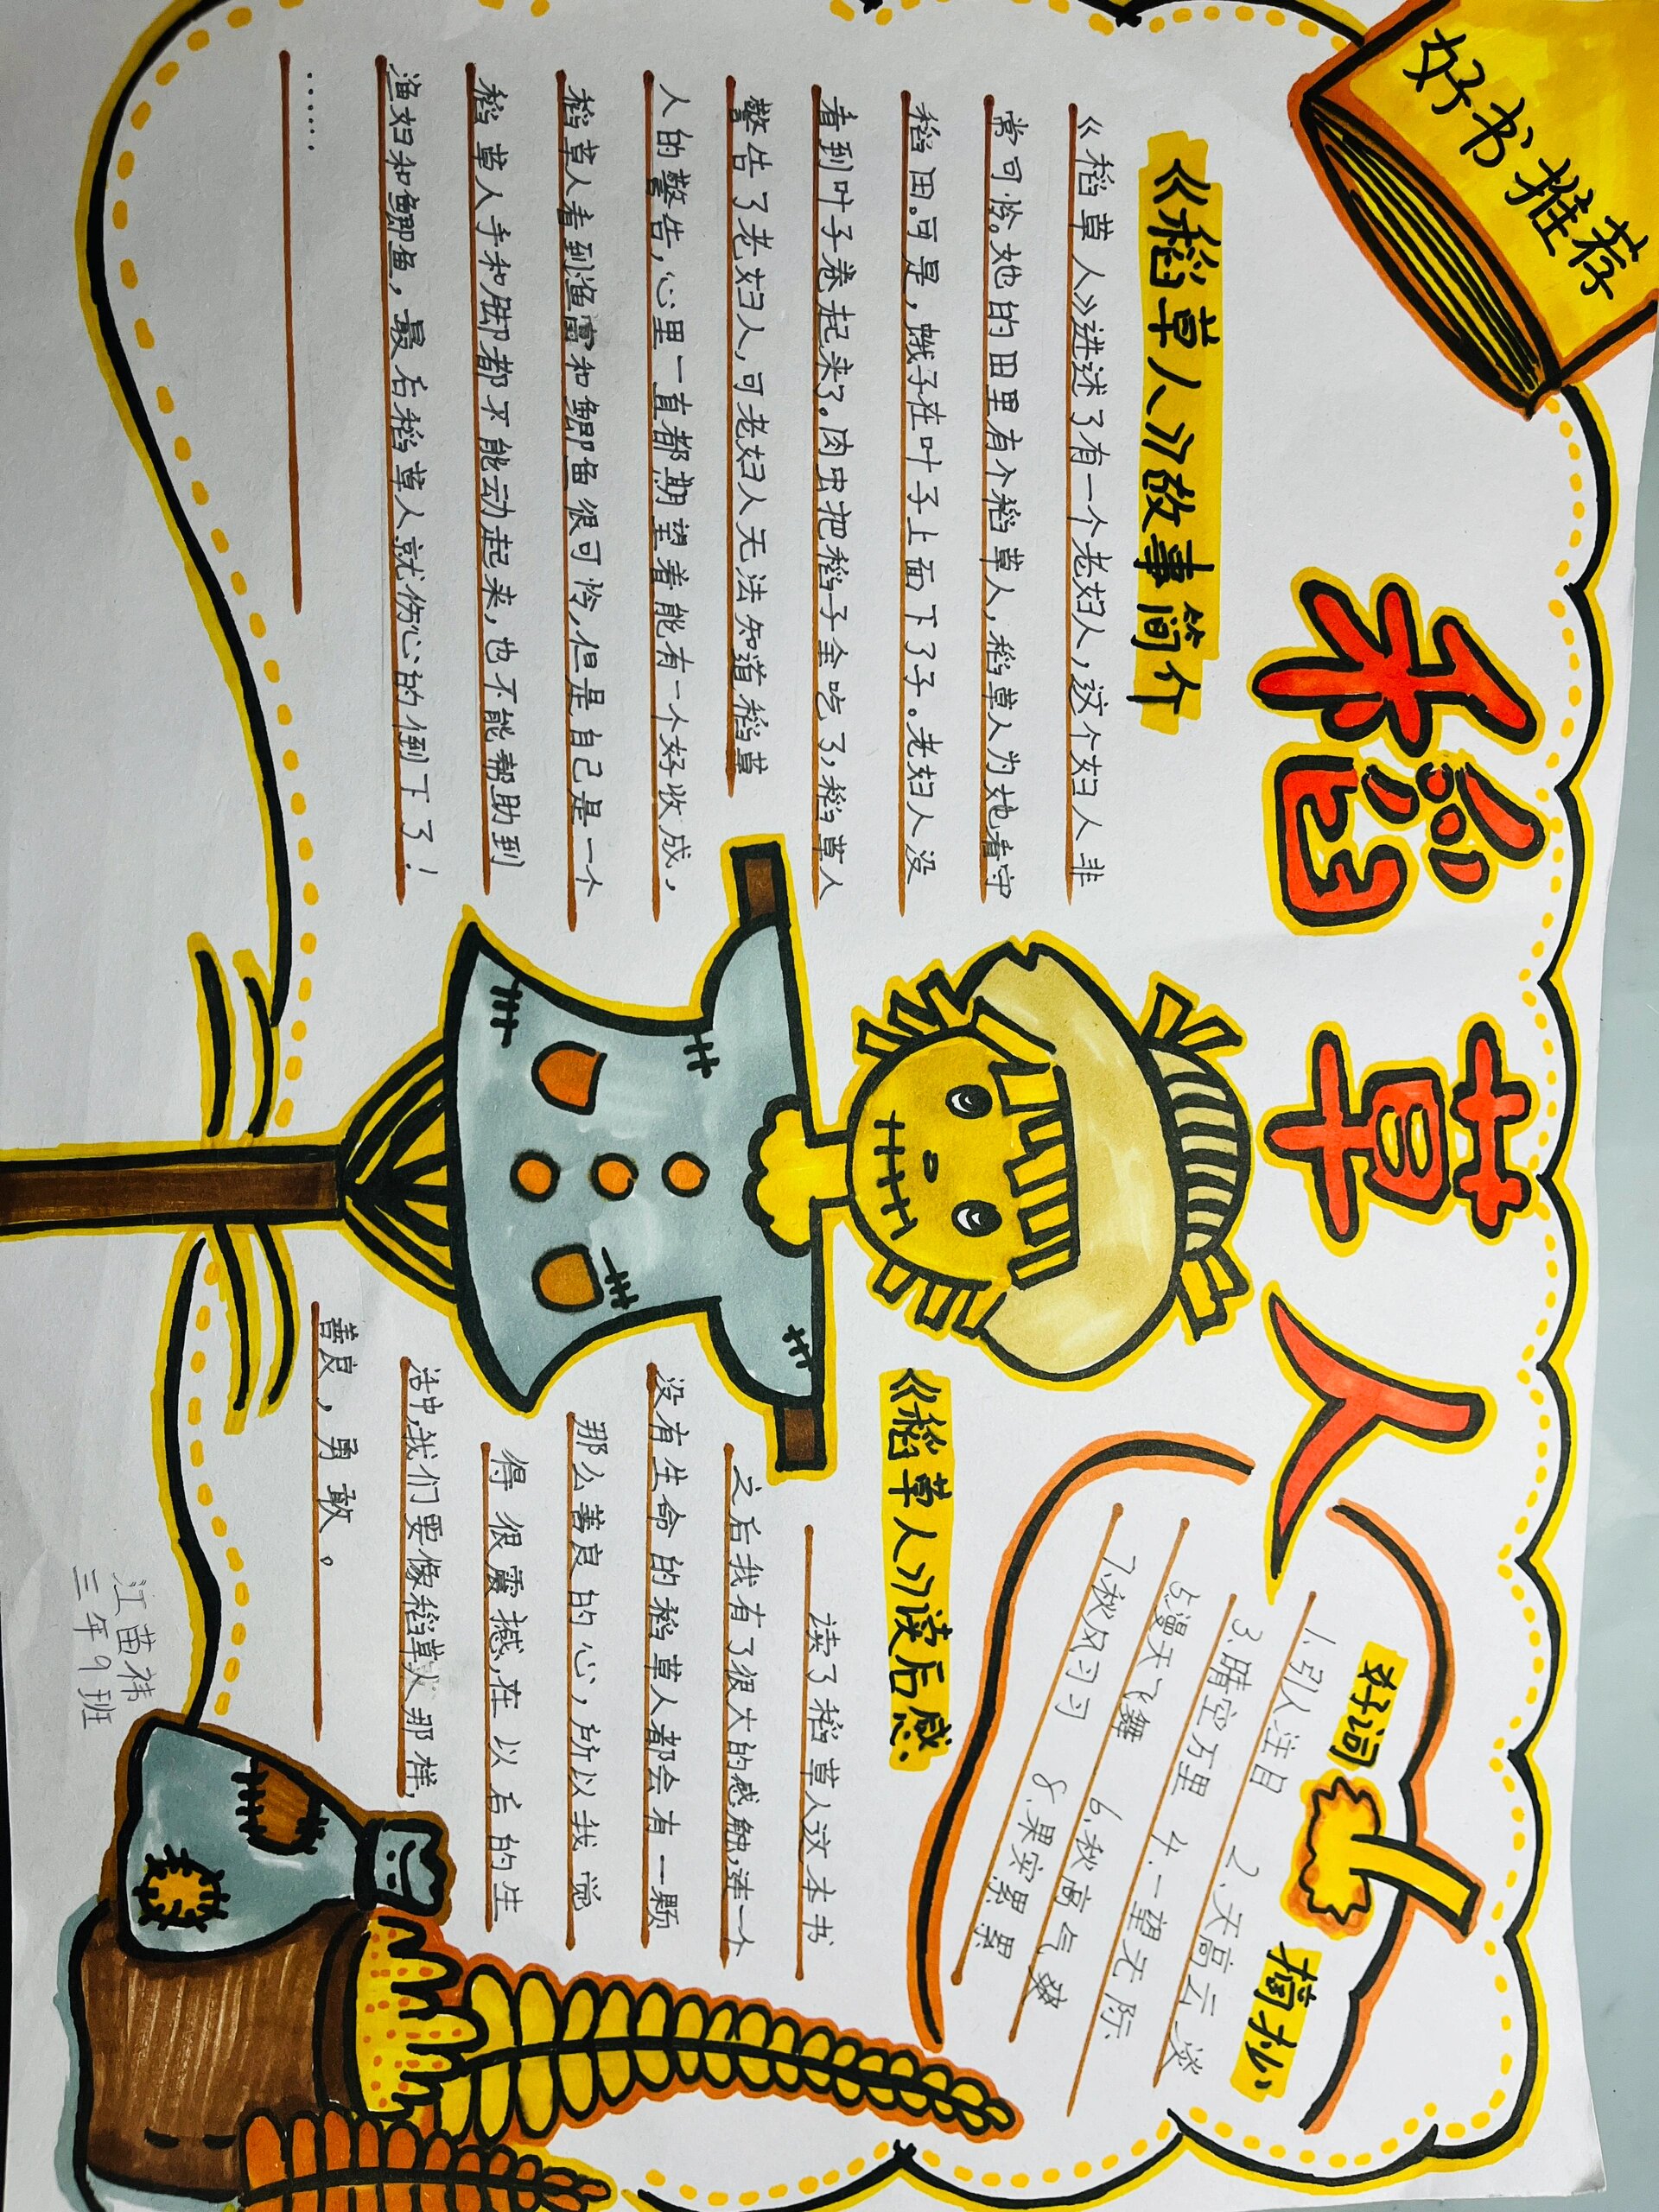 好书推荐
稻草人
《稻草人》故事简介
《稻草人》讲述了有一个老妇人，这个妇人非
常可怜。她的田里有个稻草人，稻草人为她看守
稻田。可是，蛾子在叶子上面下了子。老妇人没
看到叶子卷起来了。肉虫把稻子全吃了，稻草人
警告了老妇人，可老妇人无法知道稻草
人的警告，心里一直都期望着能有一个好收成，
稻草人看到渔妇和鲫鱼很可怜，但是自己是一个
稻草人手和脚都不能动起来，也不能帮助到
渔妇和鲫鱼，最后稻草人就伤心的倒下了！
……
好词摘抄
1.引人注目 2.天高云淡
3.晴空万里 4.一望无际
5.漫天飞舞 6.秋高气爽
7.秋风习习 8.果实累累
《稻草人》读后感
读了稻草人这本书
之后我有了很大的感触，连一个
没有生命的稻草人都会有一颗
那么善良的心，所以我觉
得很震撼，在以后的生
活中，我们要像稻草人那样，
善良，勇敢。
江苗祎
三年9班